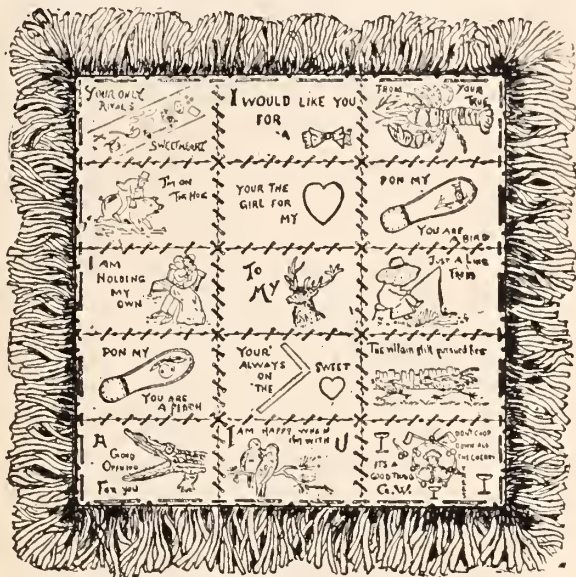 YOUR ONLY
RIVALS
SWEETHEART
I WOULD LIKE YOU
FOR
A
FROM YOUR
TRUE
I'M ON
THE HOG
YOUR THE
GIRL FOR
MY
PON MY
YOU ARE
A BIRD
I AM
HOLDING
MY
OWN
TO
MY
JUST A LINE
PON MY
YOU ARE
A PEACH
YOUR
ALWAYS
ON
THE
SWEET
The villain still pursued her
A
GOOD
OPENING
FOR YOU
I AM HAPPY WHEN
I'M WITH U
DON'T CHOP
DOWN ALL
THE CHERRY
IT'S A
GOOD THING
G.W.